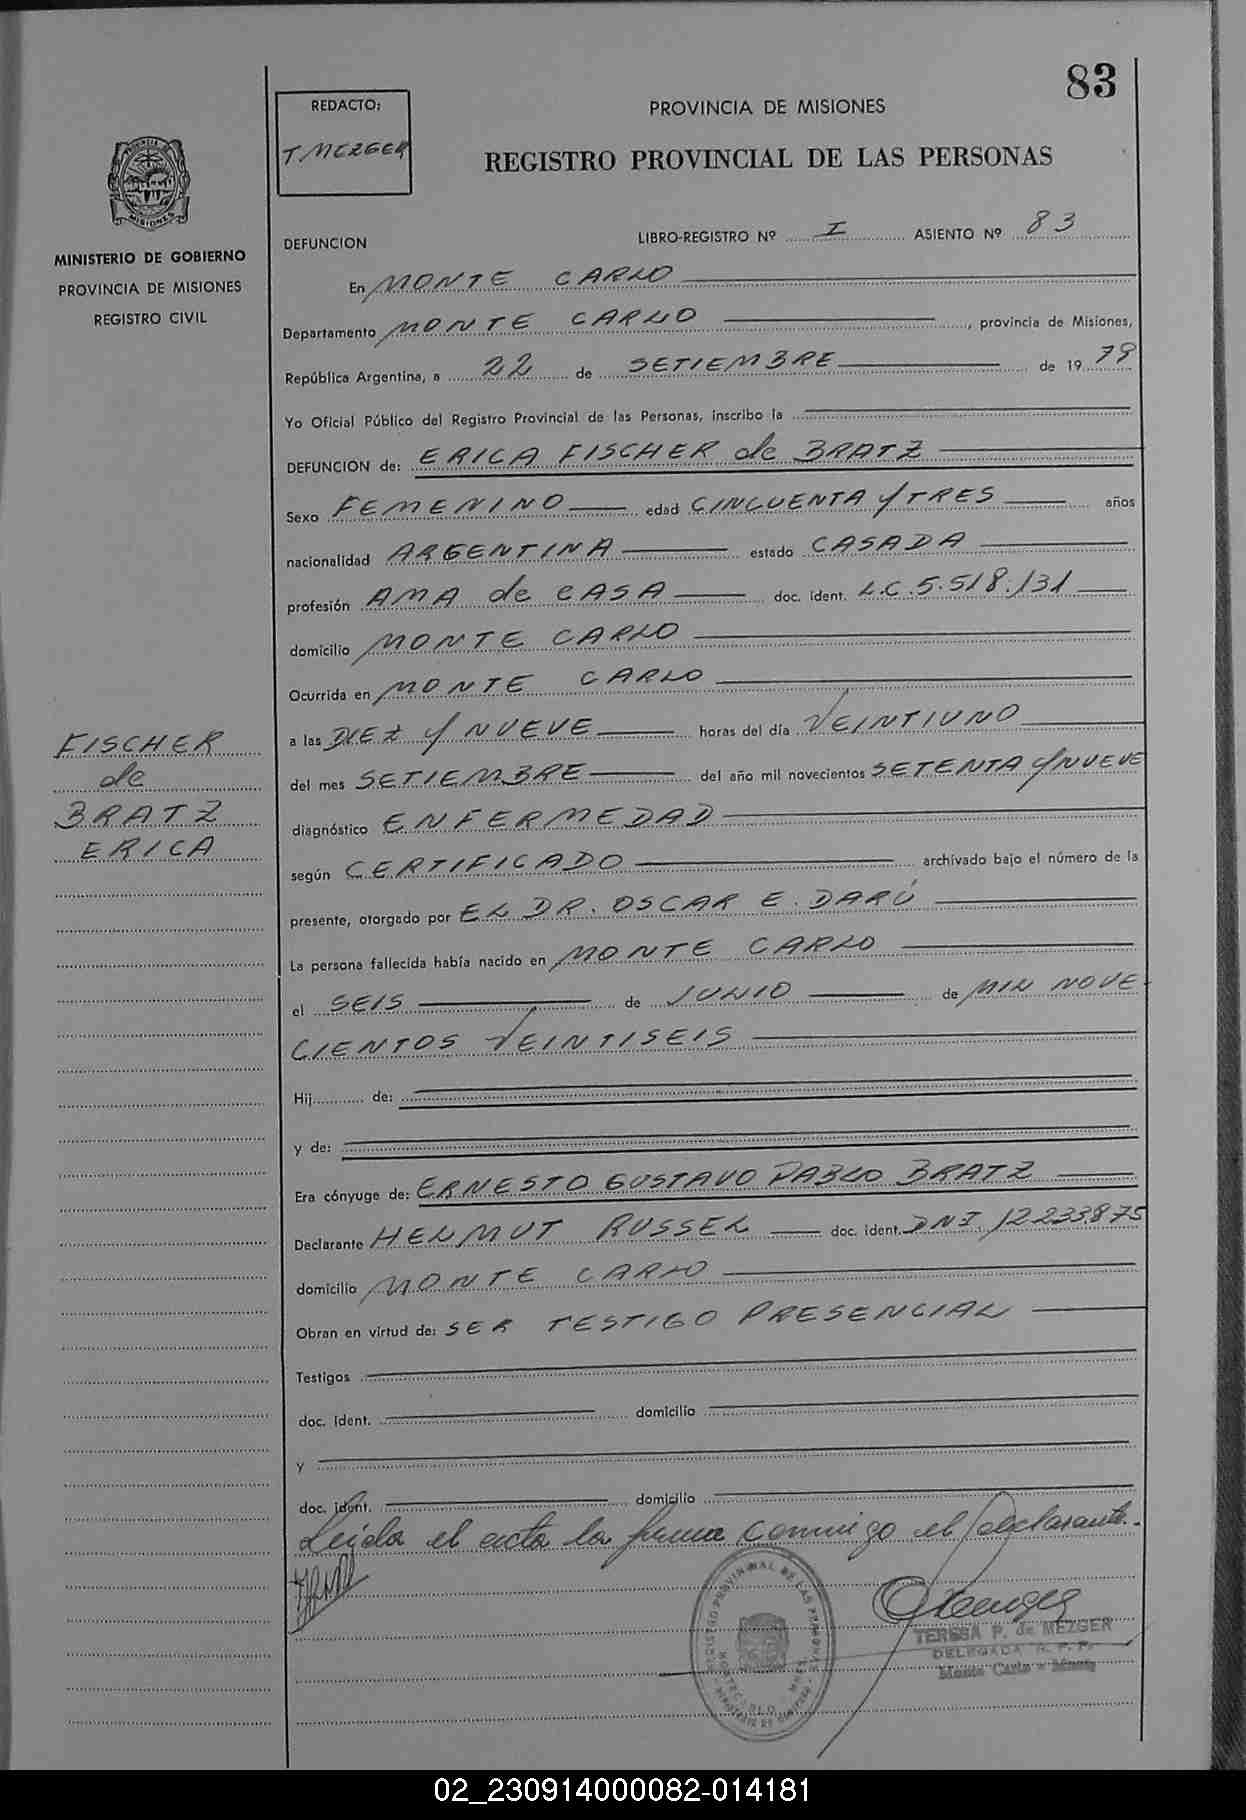 83
REDACTO:
T. MEZGER
PROVINCIA DE MISIONES
REGISTRO PROVINCIAL DE LAS PERSONAS
PROVINCIA DE
MISIONES
MINISTERIO DE GOBIERNO
PROVINCIA DE MISIONES
REGISTRO CIVIL
DEFUNCION
LIBRO-REGISTRO Nº I ASIENTO Nº 83
En MONTE CARLO
Departamento MONTE CARLO, provincia de Misiones,
República Argentina, a 22 de SETIEMBRE de 1979
Yo Oficial Público del Registro Provincial de las Personas, inscribo la
DEFUNCION de: ERICA FISCHER de BRATZ
Sexo FEMENINO edad CINCUENTA y TRES años
nacionalidad ARGENTINA estado CASADA
profesión AMA de CASA doc. ident. L.C. 5.518.131
domicilio MONTE CARLO
Ocurrida en MONTE CARLO
a las DIEZ y NUEVE horas del día VEINTIUNO
del mes SETIEMBRE del año mil novecientos SETENTA y NUEVE
diagnóstico ENFERMEDAD
según CERTIFICADO archivado bajo el número de la
presente, otorgado por EL DR. OSCAR E. DARÚ
La persona fallecida había nacido en MONTE CARLO
el SEIS de JUNIO de MIL NOVE
CIENTOS VEINTISEIS
Hij de:
y de:
Era cónyuge de: ERNESTO GUSTAVO PABLO BRATZ
Declarante HELMUT RUSSEL doc. ident. DNI 12233.875
domicilio MONTE CARLO
Obran en virtud de: SER TESTIGO PRESENCIAL
Testigos
doc. ident. domicilio
y
doc. ident. domicilio
Leída el acta la firma conmigo el declarante.
FISCHER
de
BRATZ
ERICA
TERESA P. de MEZGER
DELEGADA R. P. P.
Monte Carlo - Mnes
02_230914000082-014181